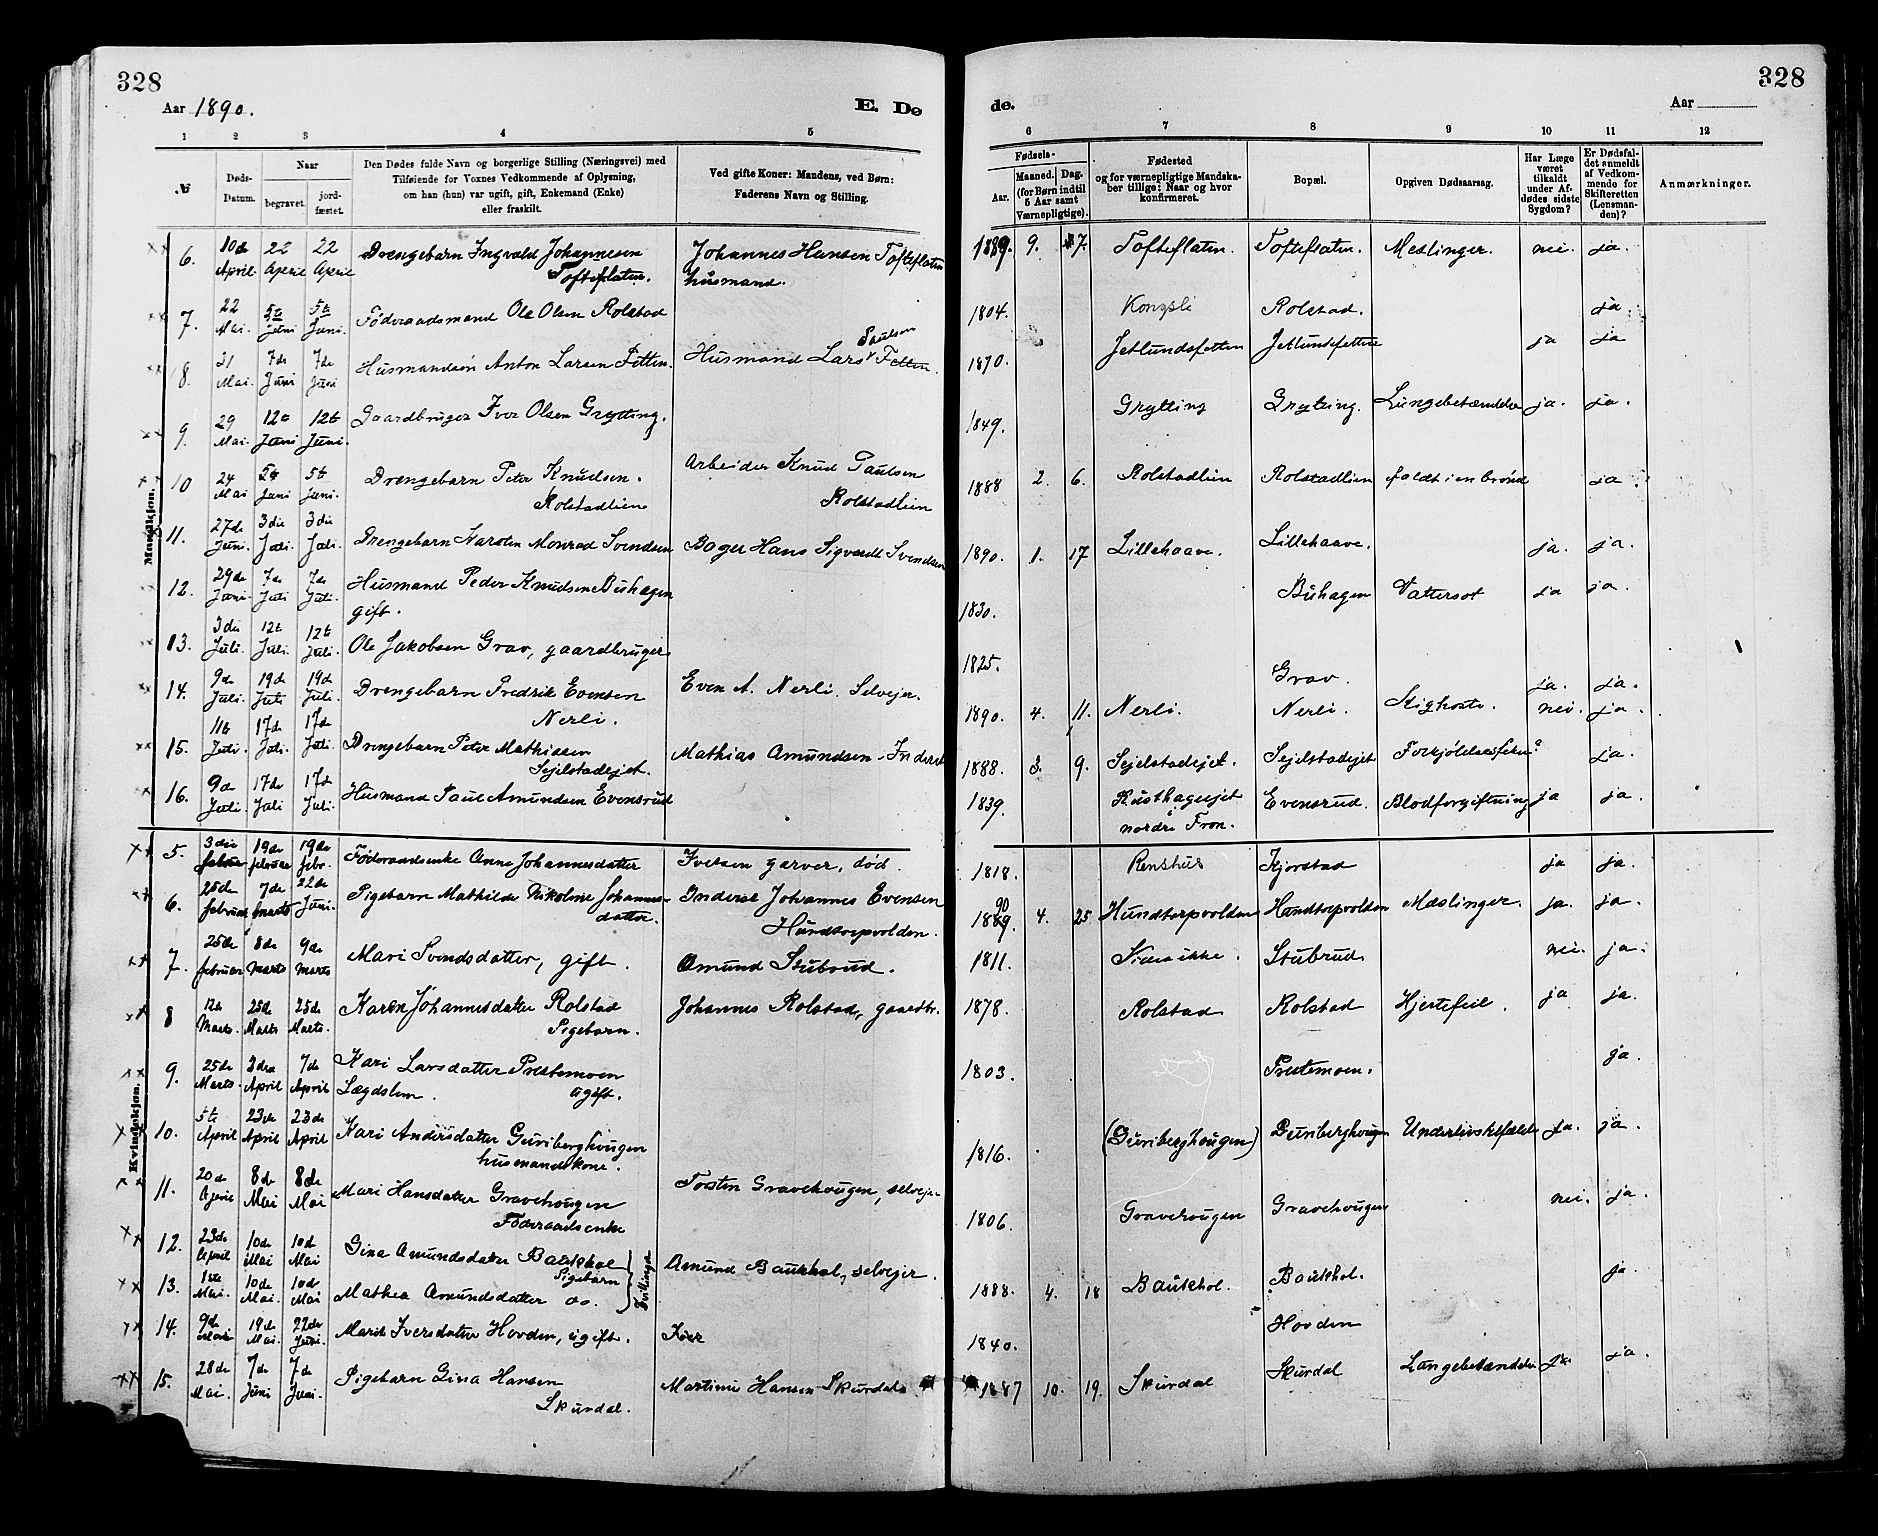 328
328
Aar 1890.
E. Dø
de.
Aar
1 2 3 4 5 6 7 8 9 10 11 12
№
Døds-Datum.
Naar
begravet.
jord-fæstet.
Den Dødes fulde Navn og borgerlige Stilling (Næringsvei) med
Tilføiende for Voxnes Vedkommende af Oplysning,
om han (hun) var ugift, gift, Enkemand (Enke)
eller fraskilt.
Ved gifte Koner: Mandens, ved Børn:
Faderens Navn og Stilling.
Fødsels-
Aar.
Maaned. Dag.
(for Børn indtil
5 Aar samt
Værnepligtige).
Fødested
og for værnepligtige Mandska-
ber tillige: Naar og hvor
konfirmeret.
Bopæl.
Opgiven Dødsaarsag.
Har Læge
været
tilkaldt
under Af-
dødes sidste
Sygdom?
Er Dødsfal-
det anmeldt
af Vedkom-
mende for
Skifteretten
(Lensman-
den)?
Anmærkninger.
Mandkjøn.
6. 10de April 22 April 22 April Drengebarn Ingvald Johannesen Tofteflaten. Johannes Hansen Tofteflaten husmand. 1889. 9. 7. Tofteflaten. Tofteflaten. Meslinger. nei. ja.
7. 22 Mai. 5te Juni 5te Juni. Föderaadsmand Ole Olsen Rolstad 1804. Kongsli Rolstad. ja.
8. 31 Mai. 7de Juni 7de Juni Husmandsön Anton Larsen Fetten. Husmand Lars Paulsen Fetten. 1870. Jetlundsfetten Jetlundsfetten ja ja
9. 29 Mai. 12te Juni 12te Juni. Gaardbruger Iver Olsen Grytting. 1849. Grytting Grytting. Lungebetændelse ja. ja.
10 24 Mai 5te Juni 5te Juni. Drengebarn Peter Knudsen. Rolstadlien Arbeider Knud Paulsen Rolstadlien 1888 2. 6. Rolstadlien Rolstadlien faldt i en brönd ja.
11. 27de Juni. 3die Juli. 3die Juli. Drengebarn Karsten Monrad Svendsen Bager Hans Sigvardt Svendsen 1890. 1. 17 Lillehaave. Lillehaave. ja. ja.
12. 29de Juni. 7de Juli 7de Juli. Husmand Peder Knudsen Buhagen gift. 1830. Buhagen Vattersot ja ja.
13. 3die Juli. 12te Juli. 12te Juli. Ole Jakobsen Grav, gaardbruger 1825. Grav. ja. ja.
14. 9de Juli. 19de Juli 19de Juli. Drengebarn Fredrik Evensen Nerli. Even A. Nerli. Selvejer. 1890. 4. 11. Nerli. Nerli. Kighoste. nei. ja.
15. 11te Juli. 17de Juli. 17de Juli. Drengebarn Peter Mathissen Sejelstadejet. Mathias Amundsen. Inderst 1888. 3. 9. Sejelstadejet. Sejelstadejet Forkjölelsesfeber? ja.
16. 9de Juli. 17de Juli 17de Juli. Husmand Paul Amundsen Evensrud 1839. nordre Fron. Evensrud. Blodforgiftning ja ja.
Kvindekjøn.
5. 3die februar 19de februar 19de febr. Föderaadsenke Anne Johannesdatter Iversen garver, död. 1818. Renshus Kjorstad ja ja.
6. 25de februar 7de marts 22de Juni. Pigebarn Mathilde Nikoline Johannesdatter. Inderst Johannes Evensen Hundtorpvolden. 1889. 90 4. 25 Hundtorpvolden Hundtorpvolden Meslinger. ja. ja.
7. 25de februar 8de Marts 9de marts Mari Svendsdatter, gift. Amund Stubrud. 1811. Vides ikke. Stubrud. nei. ja.
8 12te Marts. 25de Marts 25de Marts. Karen Johannesdatter Rolstad Pigebarn. Johannes Rolstad, gaardbr. 1878. Rolstad Rolstad Hjertefeil. ja ja.
9. 25de Marts. 3die April 7de April Kari Larsdatter Prestemoen Lægdslem. ugift. 1803. Prestemoen. ja.
10. 5te April 23de April 23de April Kari Andersdatter Guriberghougen husmandskone. 1816. (Guriberghougen) Guriberghougen Underlivsbe ja. ja.
11. 20de April 8de Mai 8de Mai Mari Hansdatter Gravehougen Föderaadsenke Torsten Gravehougen, selvejer 1806. Gravehougen Gravehougen nei. ja.
12. 23de April 10de Mai 10de Mai Gina Amundsdatter Baukhol Pigebarn Tvillinger Amund Baukhol, selvejer. 1888. 4. 18 Baukhol. Baukhol. ja
13. 1ste Mai. 10de Mai. 10de Mai Mathea Amundsdatter do.
14. 9de Mai 19de Mai. 22de Juni. Marit Iversdatter Hovden, ugift. Iver 1840. Hovden
15. 28de Mai. 7de Juni 7de Juni. Pigebarn Gina Hansen Skurdal. Martinus Hansen Skurdal 1887 10. 19. Skurdal Skurdal Lungebetændelse ja. ja.